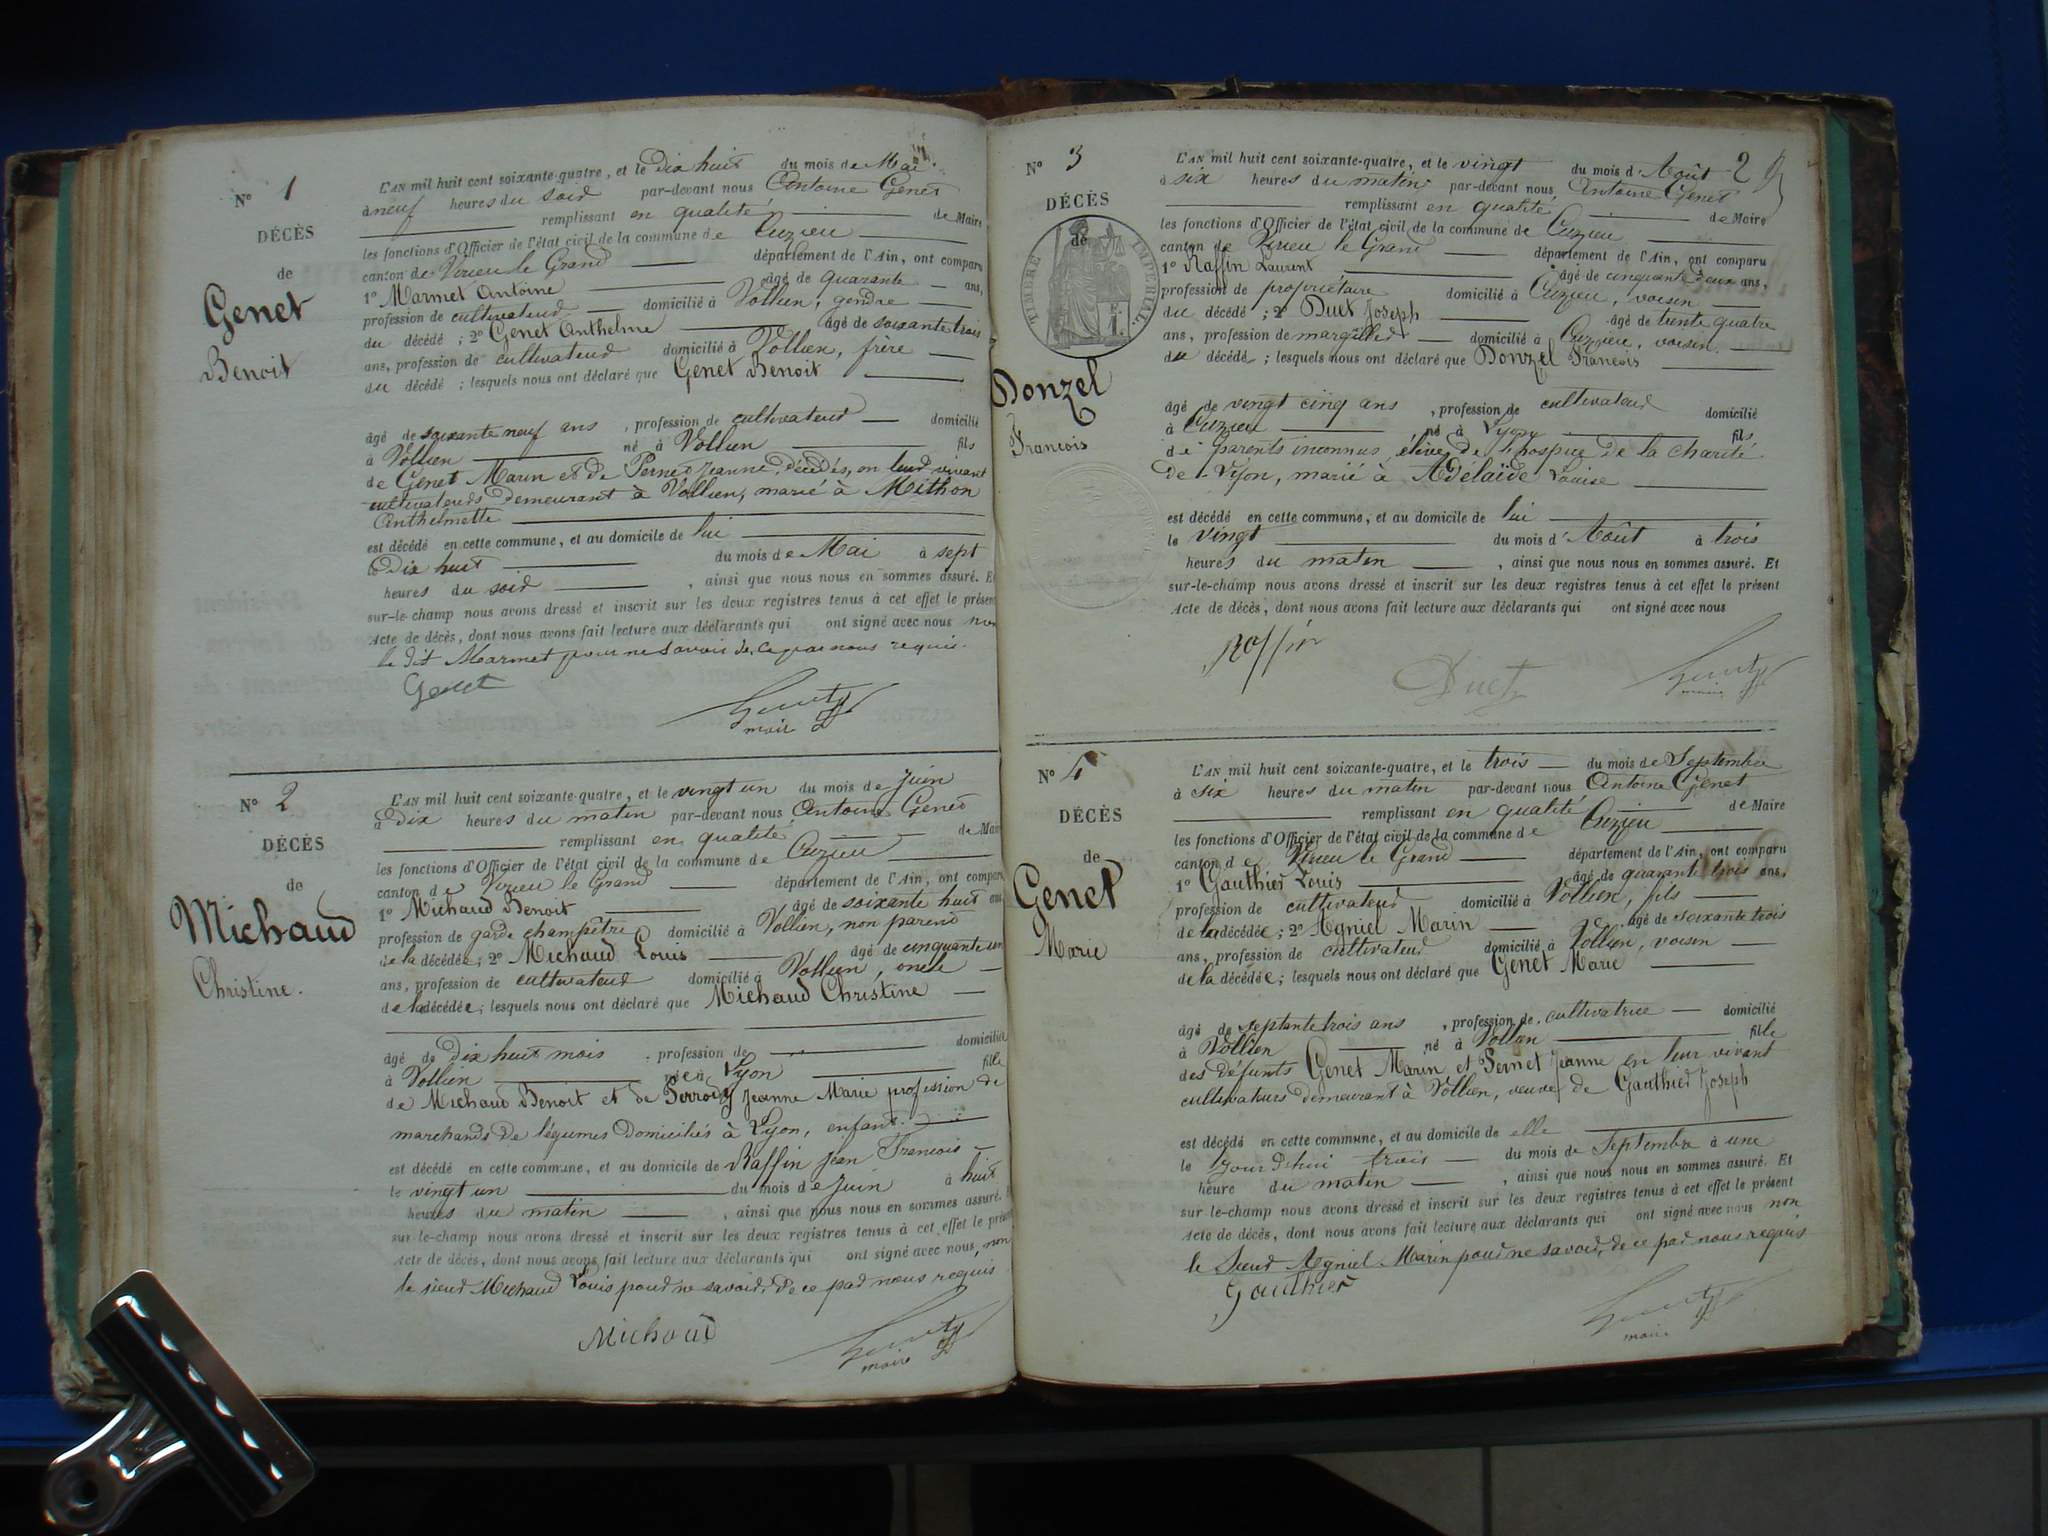 1
N° 1
DÉCÈS
de
Genet
Benoit
L'AN mil huit cent soixante-quatre, et le dix huit du mois de Mai
à neuf heures du soir par-devant nous Antoine Genet
remplissant en qualité de Maire
les fonctions d'Officier de l'état civil de la commune de Cuzieu
canton de Virieu le Grand département de l'Ain, ont comparu
1° Marmet Antoine âgé de quarante ans,
profession de cultivateur domicilié à Vollien, gendre
du décédé ; 2° Genet Anthelme âgé de soixante trois
ans, profession de cultivateur domicilié à Vollien, frère
du décédé ; lesquels nous ont déclaré que Genet Benoit
âgé de soixante neuf ans , profession de cultivateur domicilié
à Vollien né à Vollien fils
de Genet Marin et de Pernet Jeanne, décédés, en leur vivant
cultivateurs demeurant à Vollien, marié à Mithon
Anthelmette
est décédé en cette commune, et au domicile de lui
le dix huit du mois de Mai à sept
heures du soir , ainsi que nous nous en sommes assuré. Et
sur-le-champ nous avons dressé et inscrit sur les deux registres tenus à cet effet le présent
Acte de décès, dont nous avons fait lecture aux déclarants qui ont signé avec nous non
le dit Marmet pour ne savoir de ce par nous requis.
Genet
maire
N° 2
DÉCÈS
de
Michaud
Christine.
L'AN mil huit cent soixante-quatre, et le vingt un du mois de Juin
à dix heures du matin par-devant nous Antoine Genet
remplissant en qualité de Maire
les fonctions d'Officier de l'état civil de la commune de Cuzieu
canton de Virieu le Grand département de l'Ain, ont comparu
1° Michaud Benoit âgé de soixante huit ans
profession de garde champêtre domicilié à Vollien, non parent
de la décédée; 2° Michaud Louis âgé de cinquante un
ans, profession de cultivateur domicilié à Vollien, oncle
de la décédée; lesquels nous ont déclaré que Michaud Christine
âgé de dix huit mois , profession de domiciliée
à Vollien née à Lyon fille
de Michaud Benoit et de Perroud Jeanne Marie profession de
marchands de légumes domiciliés à Lyon, enfant.
est décédé en cette commune, et au domicile de Raffin Jean Francois
le vingt un du mois de Juin à huit
heures du matin , ainsi que nous nous en sommes assuré. Et
sur-le-champ nous avons dressé et inscrit sur les deux registres tenus à cet effet le présent
Acte de décès, dont nous avons fait lecture aux déclarants qui ont signé avec nous, non
le sieur Michaud Louis pour ne savoir, de ce par nous requis
Michaud
maire
2
N° 3
DÉCÈS
de
TIMBRE IMPÉRIAL
Donzel
Francois
L'AN mil huit cent soixante-quatre, et le vingt du mois d'Août
à six heures du matin par-devant nous Antoine Genet
remplissant en qualité de Maire
les fonctions d'Officier de l'état civil de la commune de Cuzieu
canton de Virieu le Grand département de l'Ain, ont comparu
1° Raffin Laurent âgé de cinquante deux ans,
profession de propriétaire domicilié à Cuzieu, voisin
du décédé ; 2° Duet Joseph âgé de trente quatre
ans, profession de marguillier domicilié à Cuzieu, voisin.
du décédé ; lesquels nous ont déclaré que Donzel Francois
âgé de vingt cinq ans , profession de cultivateur domicilié
à Cuzieu né à Lyon fils
de parents inconnus, élève de l'hospice de la charité
de Lyon, marié à Adélaïde Louise
est décédé en cette commune, et au domicile de lui
le vingt du mois d'Août à trois
heures du matin , ainsi que nous nous en sommes assuré. Et
sur-le-champ nous avons dressé et inscrit sur les deux registres tenus à cet effet le présent
Acte de décès, dont nous avons fait lecture aux déclarants qui ont signé avec nous
Raffin
Duet
maire
N° 4
DÉCÈS
de
Genet
Marie
L'AN mil huit cent soixante-quatre, et le trois du mois de Septembre
à six heures du matin par-devant nous Antoine Genet
remplissant en qualité de Maire
les fonctions d'Officier de l'état civil de la commune de Cuzieu
canton de Virieu le Grand département de l'Ain, ont comparu
1° Gauthier Louis âgé de quarante trois ans,
profession de cultivateur domicilié à Vollien, fils
de la décédée; 2° Agniel Marin âgé de soixante trois
ans, profession de cultivateur domicilié à Vollien, voisin
de la décédée; lesquels nous ont déclaré que Genet Marie
âgé de septante trois ans , profession de cultivatrice domicilié
à Vollien né à Vollien fille
des défunts Genet Marin et Pernet Jeanne en leur vivant
cultivateurs demeurant à Vollien, veuve de Gauthier Joseph
est décédé en cette commune, et au domicile de elle
le jourd'hui trois du mois de Septembre à une
heure du matin , ainsi que nous nous en sommes assuré. Et
sur-le-champ nous avons dressé et inscrit sur les deux registres tenus à cet effet le présent
Acte de décès, dont nous avons fait lecture aux déclarants qui ont signé avec nous non
le Sieur Agniel Marin pour ne savoir, de ce par nous requis
Gauthier
maire